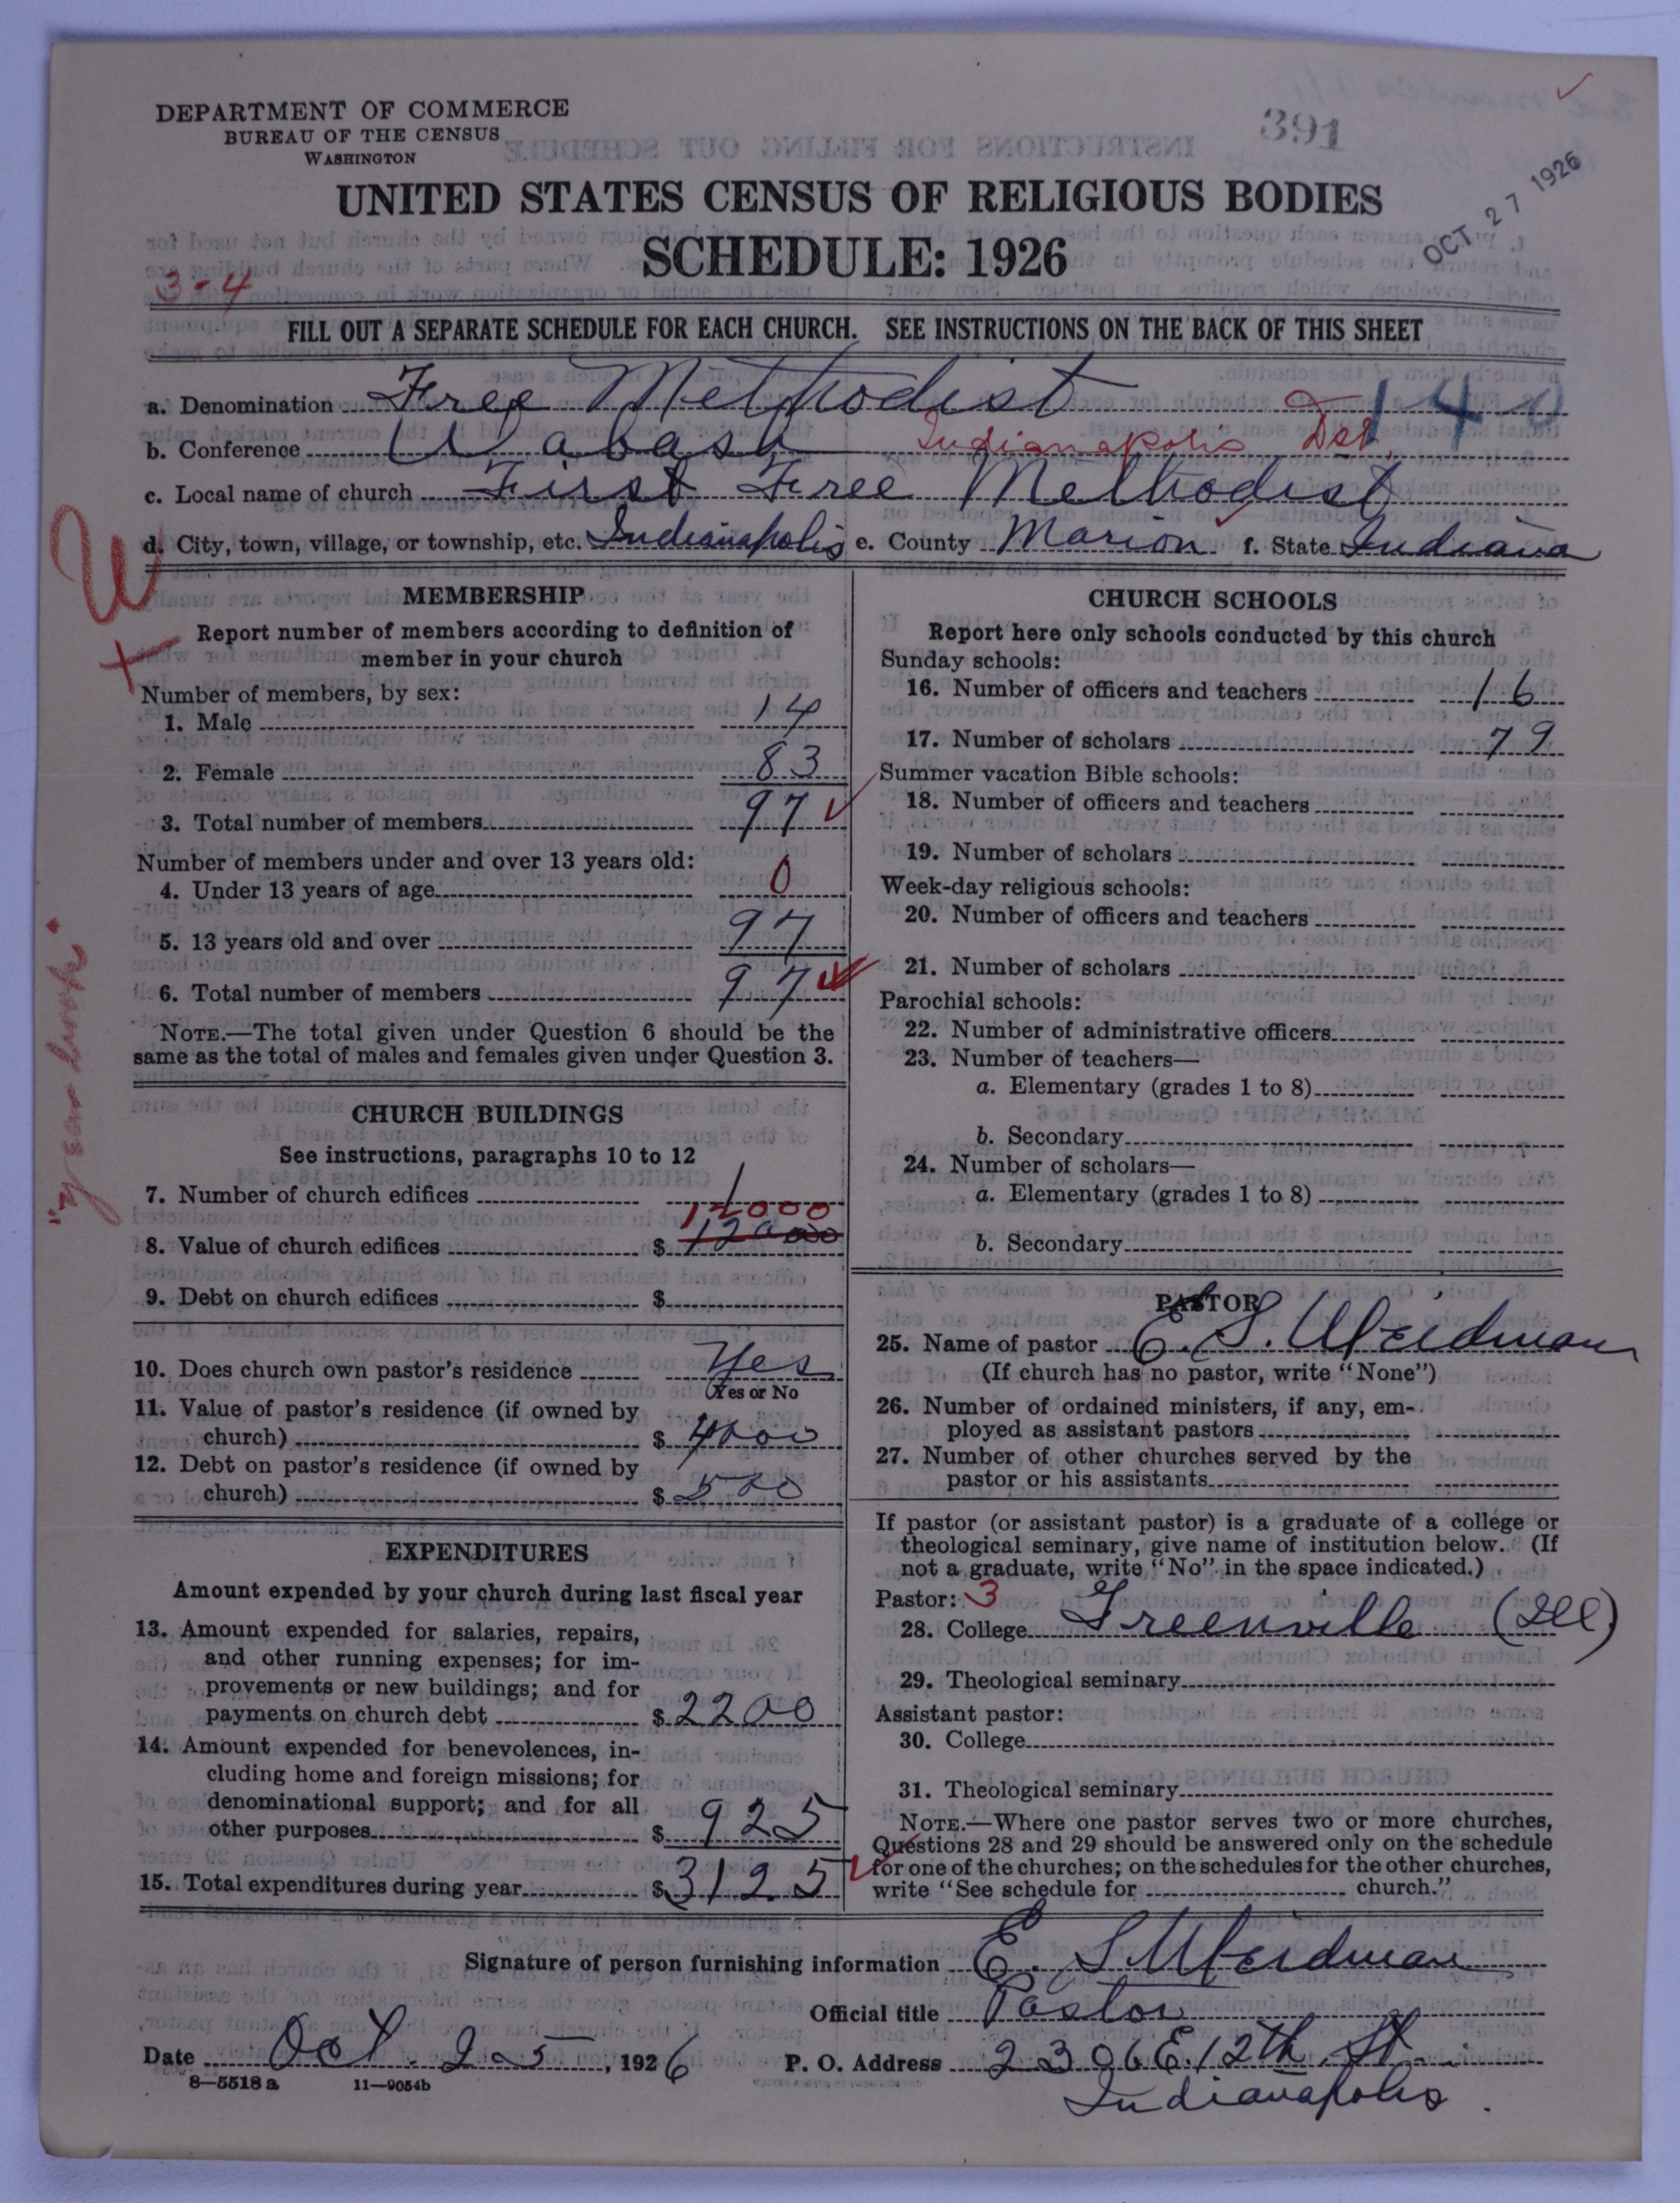 391
OCT 27 1926
DEPARTMENT OF COMMERCE
BUREAU OF THE CENSUS
WASHINGTON
UNITED STATES CENSUS OF RELIGIOUS BODIES
SCHEDULE: 1926
3-4
FILL OUT A SEPARATE SCHEDULE FOR EACH CHURCH. SEE INSTRUCTIONS ON THE BACK OF THIS SHEET
a. Denomination Free Methodist 140
b. Conference Wabash Indianapolis Dist.
c. Local name of church First Free Methodist
d. City, town, village, or township, etc. Indianapolis e. County Marion f. State Indiana
MEMBERSHIP
Report number of members according to definition of
member in your church
Number of members, by sex:
1. Male 14
2. Female 83
3. Total number of members 97
Number of members under and over 13 years old:
4. Under 13 years of age 0
5. 13 years old and over 97
6. Total number of members 97
NOTE.—The total given under Question 6 should be the
same as the total of males and females given under Question 3.
"year book"
CHURCH BUILDINGS
See instructions, paragraphs 10 to 12
7. Number of church edifices 1
12000
8. Value of church edifices $ 12000
9. Debt on church edifices $
10. Does church own pastor's residence Yes
Yes or No
11. Value of pastor's residence (if owned by
church) $ 4000
12. Debt on pastor's residence (if owned by
church) $ 500
EXPENDITURES
Amount expended by your church during last fiscal year
13. Amount expended for salaries, repairs,
and other running expenses; for im-
provements or new buildings; and for
payments on church debt $ 2200
14. Amount expended for benevolences, in-
cluding home and foreign missions; for
denominational support; and for all
other purposes $ 925
15. Total expenditures during year $ 3125
CHURCH SCHOOLS
Report here only schools conducted by this church
Sunday schools:
16. Number of officers and teachers 16
17. Number of scholars 79
Summer vacation Bible schools:
18. Number of officers and teachers
19. Number of scholars
Week-day religious schools:
20. Number of officers and teachers
21. Number of scholars
Parochial schools:
22. Number of administrative officers
23. Number of teachers—
a. Elementary (grades 1 to 8)
b. Secondary
24. Number of scholars—
a. Elementary (grades 1 to 8)
b. Secondary
PASTOR
25. Name of pastor E. S. Weidman
(If church has no pastor, write "None")
26. Number of ordained ministers, if any, em-
ployed as assistant pastors
27. Number of other churches served by the
pastor or his assistants
If pastor (or assistant pastor) is a graduate of a college or
theological seminary, give name of institution below. (If
not a graduate, write "No" in the space indicated.)
Pastor: 3
28. College Greenville (Ill)
29. Theological seminary
Assistant pastor:
30. College
31. Theological seminary
NOTE.—Where one pastor serves two or more churches,
Questions 28 and 29 should be answered only on the schedule
for one of the churches; on the schedules for the other churches,
write "See schedule for church."
Signature of person furnishing information E. S. Weidman
Official title Pastor
Date Oct. 25, 1926 P. O. Address 2306 E. 12th St.
8—5518 a 11—9054b
Indianapolis.